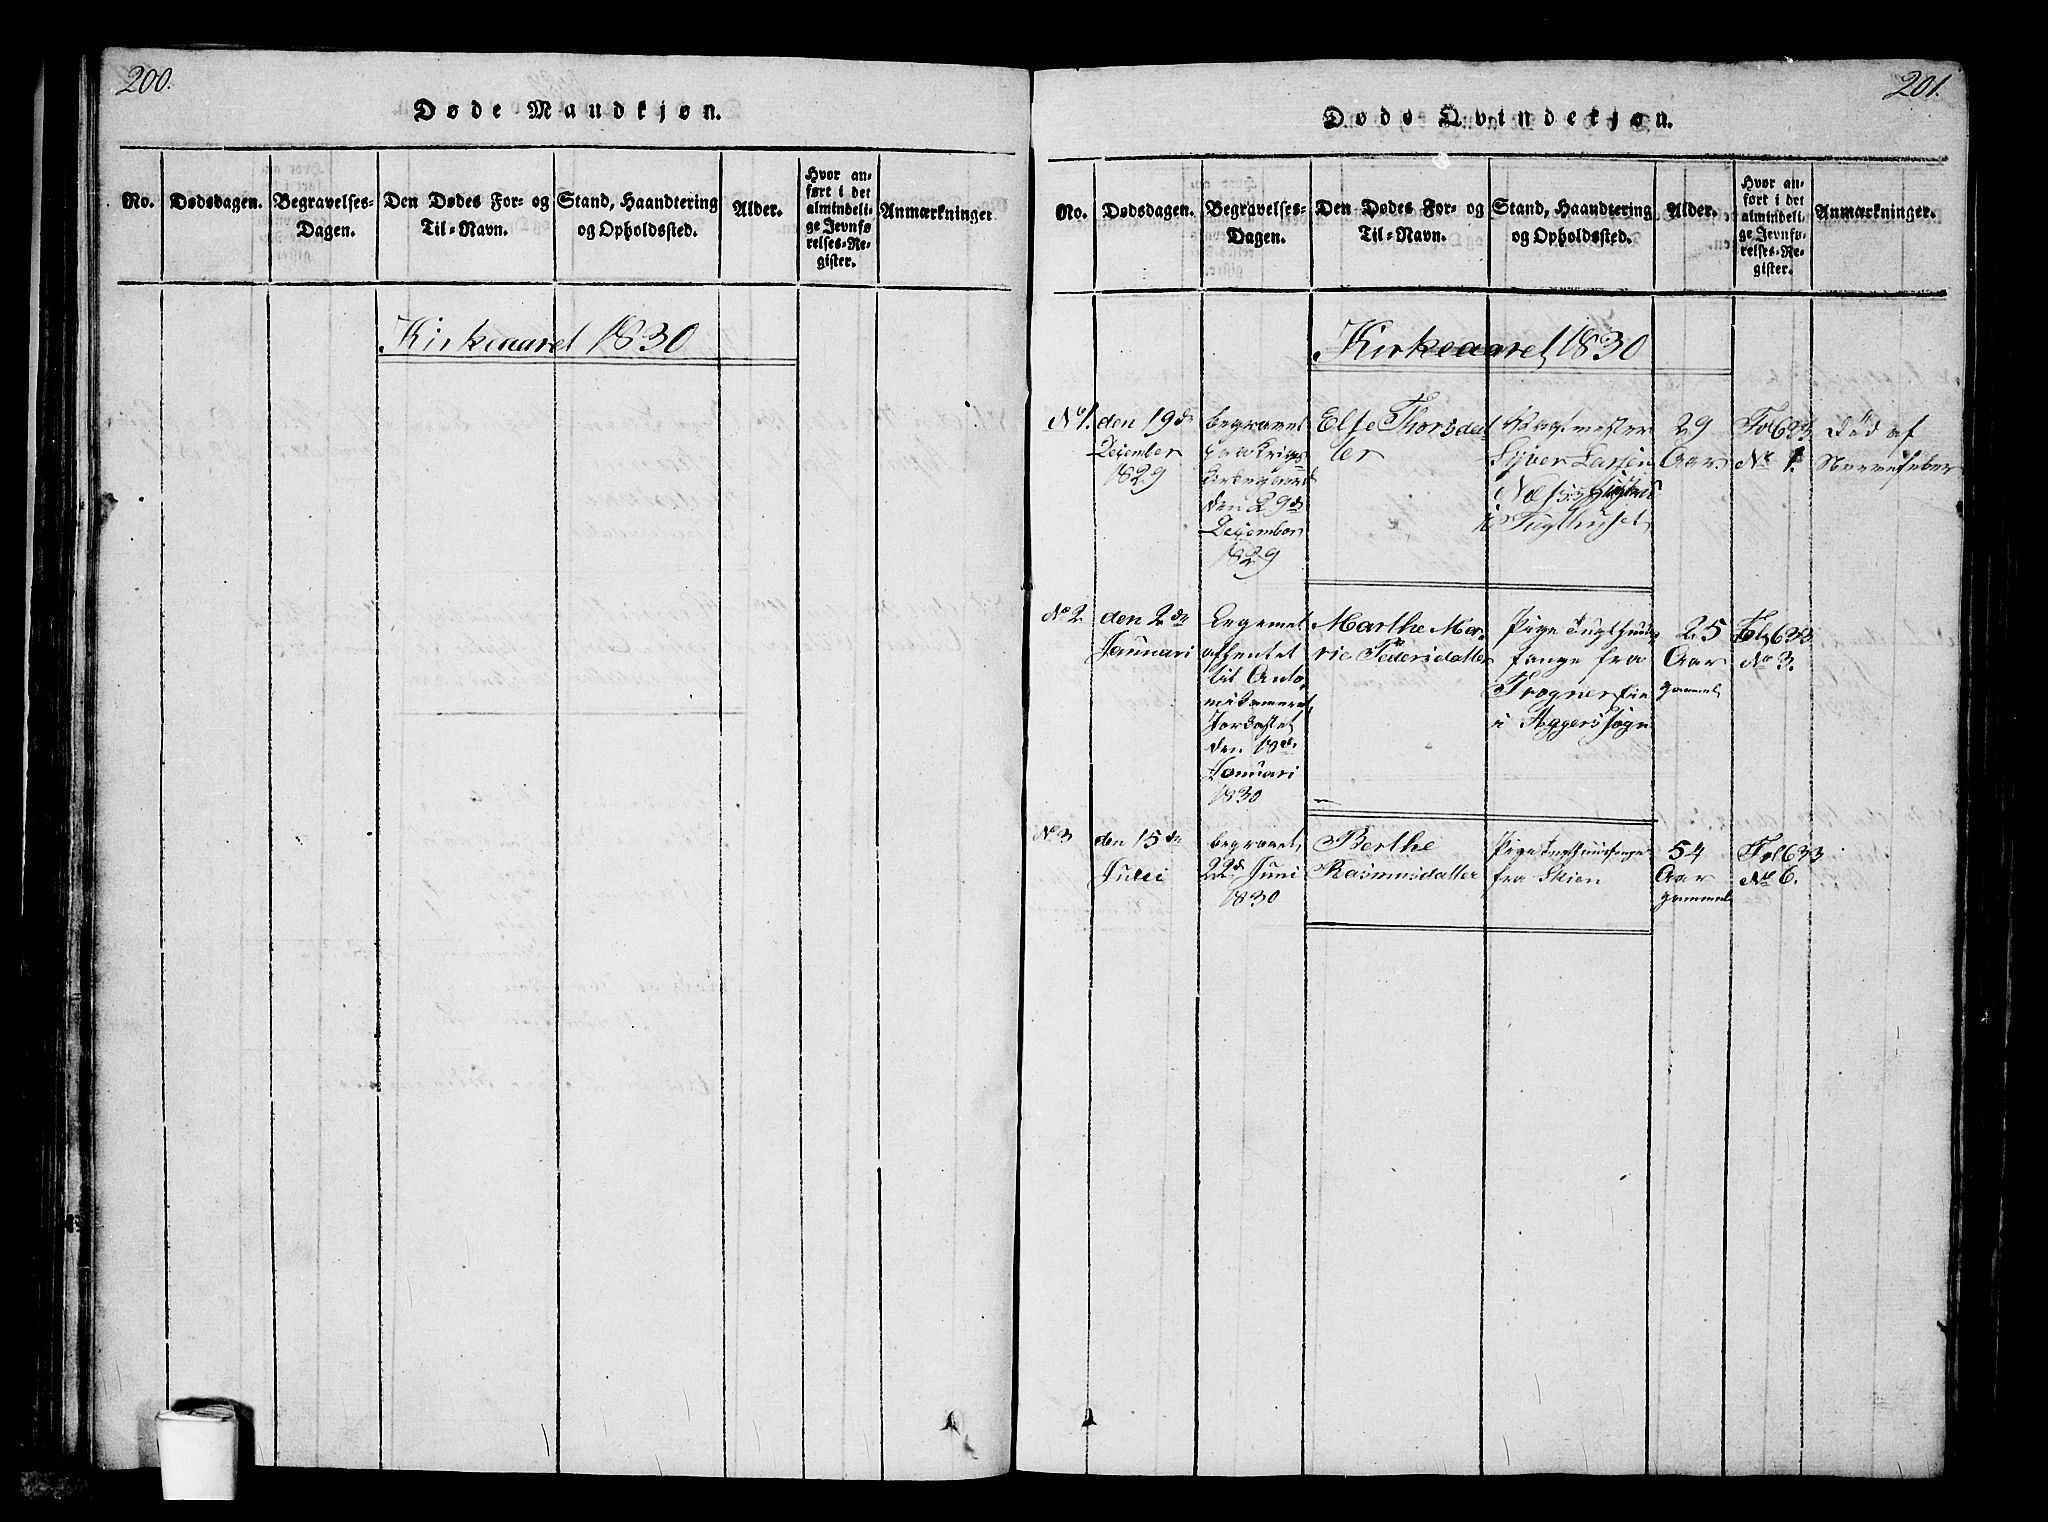 200.
Døde Mandkjøn.
No.
Dødsdagen.
Begravelses-
Dagen.
Den Dødes For- og
Til-Navn.
Stand, Haandtering
og Opholdssted.
Alder.
Hvor an-
ført i det
almindeli-
ge Jevnfø-
relses-Re-
gister.
Anmærkninger
Kirkeaaret 1830
201.
Døde Qvindekjøn.
No.
Dødsdagen.
Begravelses-
Dagen.
Den Dødes For- og
Til-Navn.
Stand, Haandtering
og Opholdssted.
Alder.
Hvor an-
ført i det
almindeli-
ge Jevnfø-
relses-Re-
gister.
Anmærkninger.
Kirkeaaret 1830
No 1.
den 19de
Deсember
1829
begravet
paa Krigs
kirkegaard
den 29de
December
1829
Else Thorsdat
ter
Vagtmester
Syver Larsen
Næs
i Tugthuset
29
Aar
Fol 633
No 1.
Død af
Nervefeber
No 2
den 2de
Januari
Legemet
afhentet
til Anto
mikameret
Jordastet
den 18de
Januari
1830
Marthe Ma-
rie Pedersdatter
Pige Tugthuus
fange fra
Frogner
i Aggers Sogn
25
Aar
gammel
Fol 633
No 3.
No 3
den 15de
Julii
begravet
22de Juni
1830
Berthe
Rasmusdatter
Pige Tugthuusfange
fra Skien
54
Aar
gammel
Fol 633
No 6.